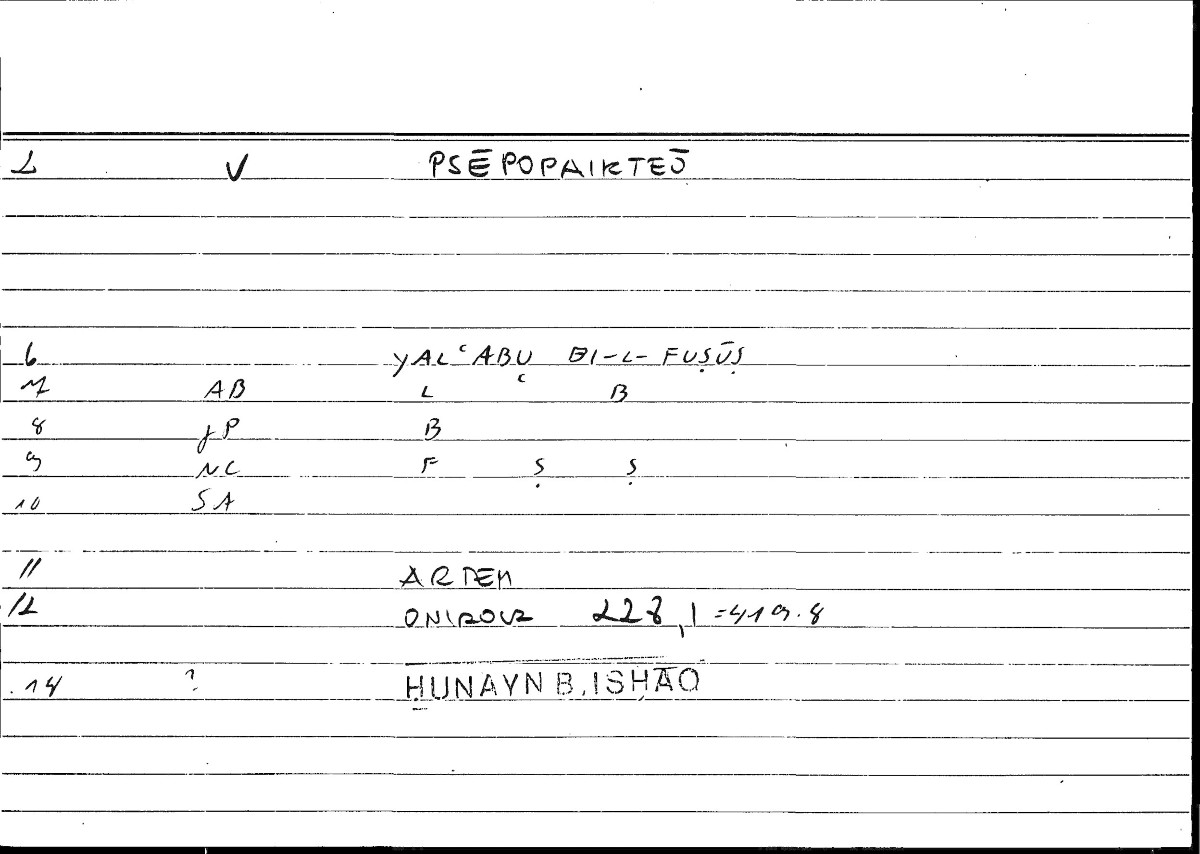 1 V PSĒPOPAIKTEŌ
6 YALʿABU BI-L-FUṢŪṢ
7 AB L ʿ B
8 JP B
9 NC F Ṣ Ṣ
10 SA
11 ARTEM
12 ONIROCR 228,1 =419.8
14 ? ḤUNAYN B. ISḤĀQ